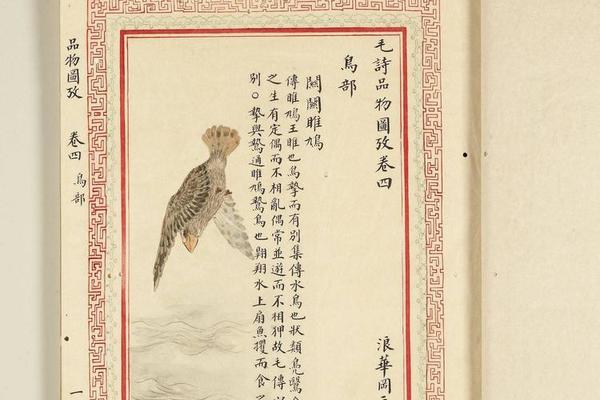 毛詩品物圖攷卷四 浪華岡
鳥部
關關雎鳩
傳雎鳩王雎也鳥摯而有別集傳水鳥也狀類鳧鷖
之生有定偶而不相亂偶常並遊而不相狎故毛傳
別○摯與鷙通雎鳩鷙鳥也翱翔水上扇魚攫而食
品物圖攷 卷四 鳥部 一